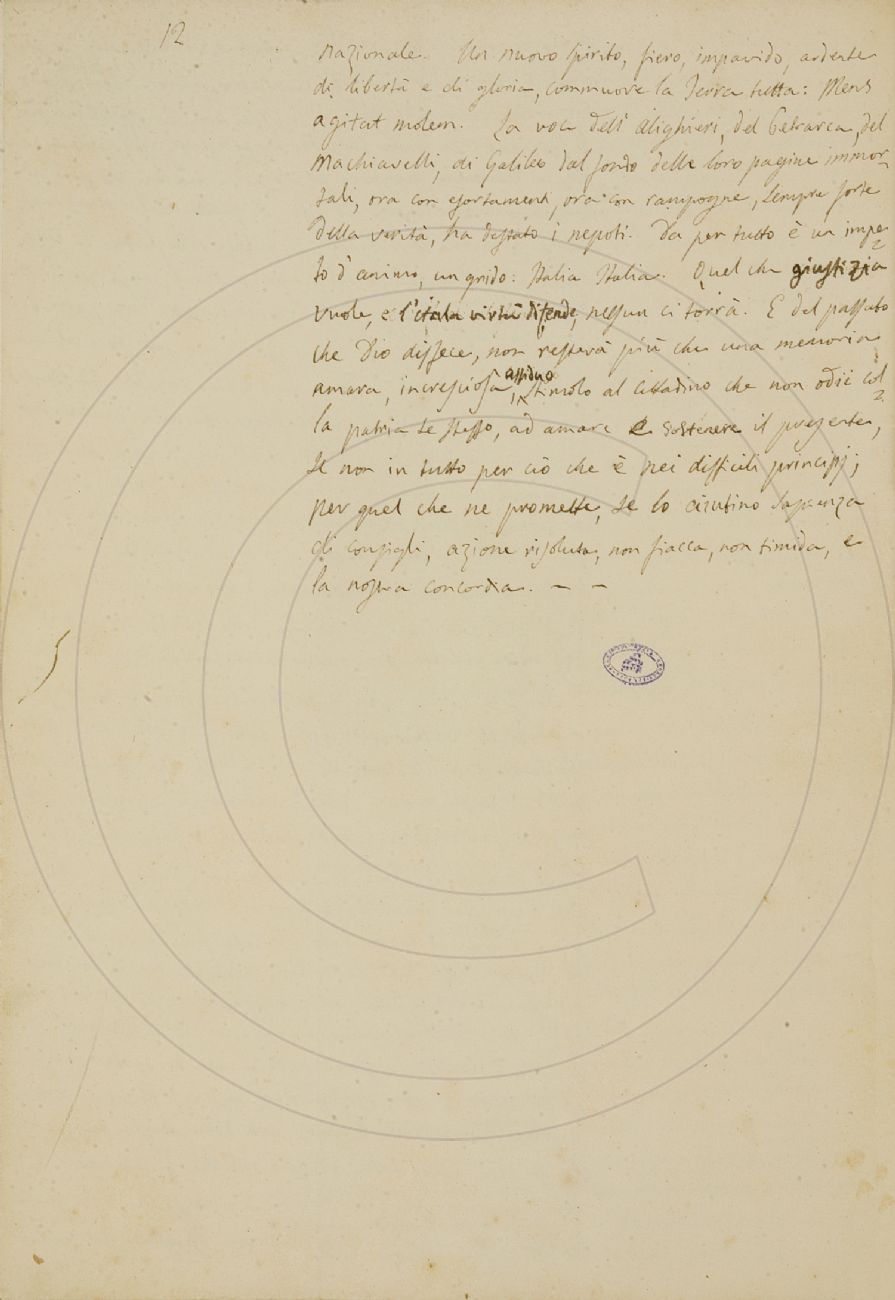 12
nazionale. Un nuovo spirito, fiero, impavido, ardente
di libertà e di gloria, commuove la Terra tutta: Mens
agitat molem. La voce dell' Alighieri, del Petrarca, del
Machiavelli, di Galileo dal fondo delle loro pagine immor-
tali, ora con esortamenti, ora con rampogne, sempre forte
della verità, ha destato i nepoti. Da per tutto è un impe-
to d'animo, un grido: Italia Italia. Quel che giustizia
vuole, e l'itala virtù difende, nessun ci torrà. E del passato
che Dio disfece, non resterà più che una memoria
amara, incresciosa, assiduo stimolo al cittadino che non odii col-
la patria se stesso, ad amare e sostenere il presente,
se non in tutto per ciò che è nei difficili principj;
per quel che ne promette, se lo aiutino sapienza
di consigli, azione risoluta, non fiacca, non timida, e
la nostra concordia. — —